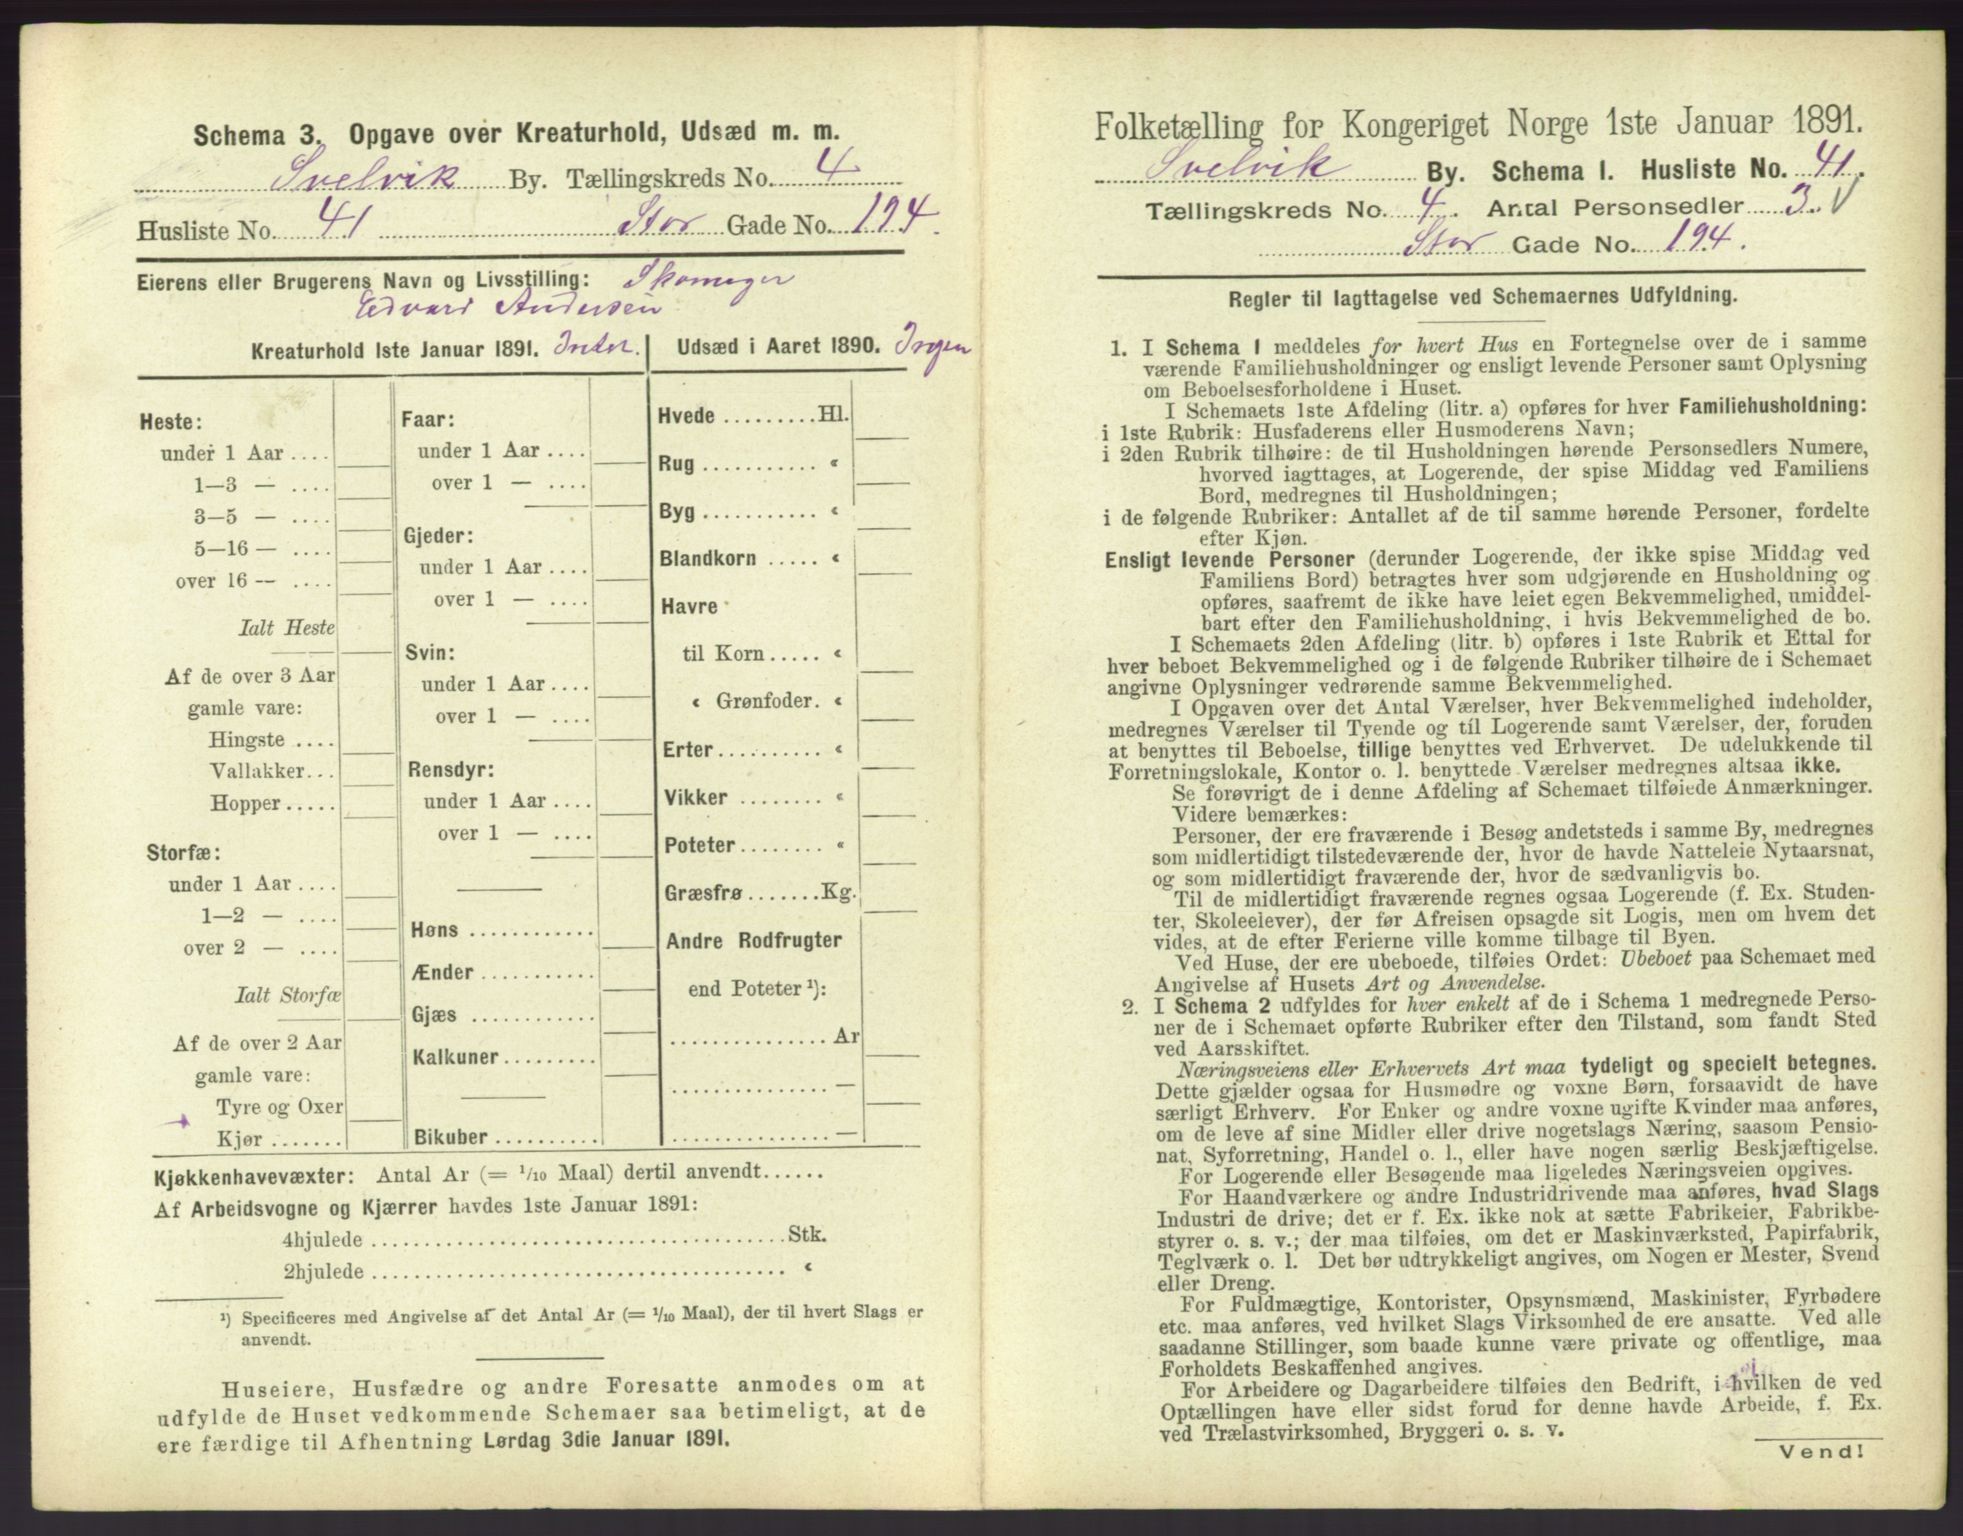 Schema 3. Opgave over Kreaturhold, Udsæd m. m.
Svelvik By. Tællingskreds No. 4
Husliste No. 41 Stor Gade No. 194.
Eierens eller Brugerens Navn og Livsstilling: Skomager
Edvard Andersen
Kreaturhold 1ste Januar 1891. Intet. Udsæd i Aaret 1890. Ingen
Heste:
under 1 Aar ....
1—3 — ....
3—5 — ....
5—16 — ....
over 16 — ....
Ialt Heste
Af de over 3 Aar
gamle vare:
Hingste ....
Vallakker...
Hopper.....
Storfæ:
under 1 Aar ....
1—2 — ....
over 2 — ....
Ialt Storfæ
Af de over 2 Aar
gamle vare:
Tyre og Oxer
Kjør .......
Faar:
under 1 Aar ....
over 1 — ....
Gjeder:
under 1 Aar ....
over 1 — ....
Svin:
under 1 Aar ....
over 1 — ....
Rensdyr:
under 1 Aar ....
over 1 — ....
Høns ............
Ænder ...........
Gjæs ............
Kalkuner.........
Bikuber ..........
Hvede .........Hl.
Rug ........... «
Byg ........... «
Blandkorn ..... «
Havre
til Korn ..... «
« Grønfoder. «
Erter.......... «
Vikker ........ «
Poteter........ «
Græsfrø .......Kg.
Andre Rodfrugter
end Poteter ¹):
............... Ar
............... —
............... —
Kjøkkenhavevæxter: Antal Ar (= 1/10 Maal) dertil anvendt......
Af Arbeidsvogne og Kjærrer havdes 1ste Januar 1891:
4hjulede ..................................... Stk.
2hjulede ..................................... «
¹) Specificeres med Angivelse af det Antal Ar (= 1/10 Maal), der til hvert Slags er
anvendt.
Huseiere, Husfædre og andre Foresatte anmodes om at
udfylde de Huset vedkommende Schemaer saa betimeligt, at de
ere færdige til Afhentning Lørdag 3die Januar 1891.
Folketælling for Kongeriget Norge 1ste Januar 1891.
Svelvik By. Schema 1. Husliste No. 41.
Tællingskreds No. 4. Antal Personsedler 3. V
Stor Gade No. 194.
Regler til Iagttagelse ved Schemaernes Udfyldning.
1. I Schema 1 meddeles for hvert Hus en Fortegnelse over de i samme
værende Familiehusholdninger og ensligt levende Personer samt Oplysning
om Beboelsesforholdene i Huset.
I Schemaets 1ste Afdeling (litr. a) opføres for hver Familiehusholdning:
i 1ste Rubrik: Husfaderens eller Husmoderens Navn;
i 2den Rubrik tilhøire: de til Husholdningen hørende Personsedlers Numere,
hvorved iagttages, at Logerende, der spise Middag ved Familiens
Bord, medregnes til Husholdningen;
i de følgende Rubriker: Antallet af de til samme hørende Personer, fordelte
efter Kjøn.
Ensligt levende Personer (derunder Logerende, der ikke spise Middag ved
Familiens Bord) betragtes hver som udgjørende en Husholdning og
opføres, saafremt de ikke have leiet egen Bekvemmelighed, umiddel-
bart efter den Familiehusholdning, i hvis Bekvemmelighed de bo.
I Schemaets 2den Afdeling (litr. b) opføres i 1ste Rubrik et Ettal for
hver beboet Bekvemmelighed og i de følgende Rubriker tilhøire de i Schemaet
angivne Oplysninger vedrørende samme Bekvemmelighed.
I Opgaven over det Antal Værelser, hver Bekvemmelighed indeholder,
medregnes Værelser til Tyende og til Logerende samt Værelser, der, foruden
at benyttes til Beboelse, tillige benyttes ved Erhvervet. De udelukkende til
Forretningslokale, Kontor o. l. benyttede Værelser medregnes altsaa ikke.
Se forøvrigt de i denne Afdeling af Schemaet tilføiede Anmærkninger.
Videre bemærkes:
Personer, der ere fraværende i Besøg andetsteds i samme By, medregnes
som midlertidigt tilstedeværende der, hvor de havde Natteleie Nytaarsnat,
og som midlertidigt fraværende der, hvor de sædvanligvis bo.
Til de midlertidigt fraværende regnes ogsaa Logerende (f. Ex. Studen-
ter, Skoleelever), der før Afreisen opsagde sit Logis, men om hvem det
vides, at de efter Ferierne ville komme tilbage til Byen.
Ved Huse, der ere ubeboede, tilføies Ordet: Ubeboet paa Schemaet med
Angivelse af Husets Art og Anvendelse.
2. I Schema 2 udfyldes for hver enkelt af de i Schema 1 medregnede Perso-
ner de i Schemaet opførte Rubriker efter den Tilstand, som fandt Sted
ved Aarsskiftet.
Næringsveiens eller Erhvervets Art maa tydeligt og specielt betegnes.
Dette gjælder ogsaa for Husmødre og voxne Børn, forsaavidt de have
særligt Erhverv. For Enker og andre voxne ugifte Kvinder maa anføres,
om de leve af sine Midler eller drive nogetslags Næring, saasom Pensio-
nat, Syforretning, Handel o. l., eller have nogen særlig Beskjæftigelse.
For Logerende eller Besøgende maa ligeledes Næringsveien opgives.
For Haandværkere og andre Industridrivende maa anføres, hvad Slags
Industri de drive; det er f. Ex. ikke nok at sætte Fabrikeier, Fabrikbe-
styrer o. s. v.; der maa tilføies, om det er Maskinværksted, Papirfabrik,
Teglværk o. l. Det bør udtrykkeligt angives, om Nogen er Mester, Svend
eller Dreng.
For Fuldmægtige, Kontorister, Opsynsmænd, Maskinister, Fyrbødere
etc. maa anføres, ved hvilket Slags Virksomhed de ere ansatte. Ved alle
saadanne Stillinger, som baade kunne være private og offentlige, maa
Forholdets Beskaffenhed angives.
For Arbeidere og Dagarbeidere tilføies den Bedrift, i hvilken de ved
Optællingen have eller sidst forud for denne havde Arbeide, f. Ex.
ved Trælastvirksomhed, Bryggeri o. s. v.
Vend!